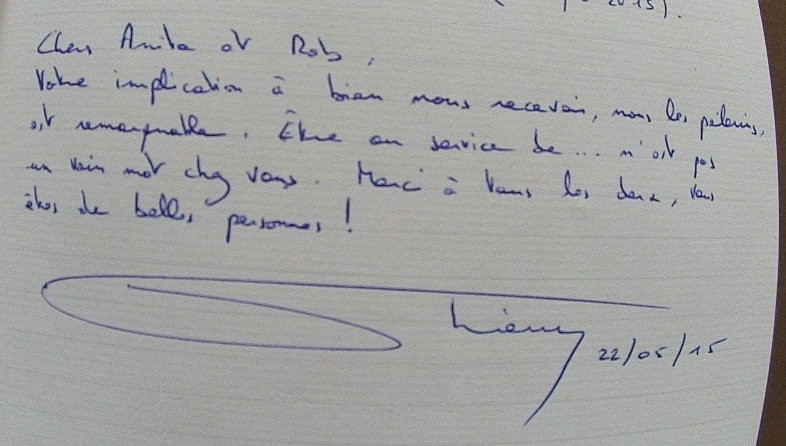 2015).
Chers Anita et Rob,
Votre implication à bien nous recevoir, nous les pèlerins,
est remarquable. Être au service de... n'est pas
un vain mot chez vous. Merci à vous les deux, vous
êtes de belles personnes !
Thierry
22/05/15